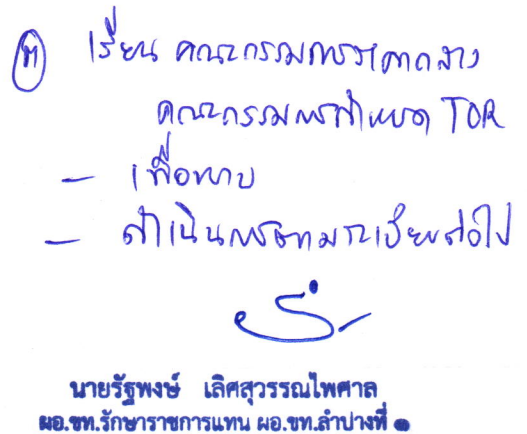 ๓ เรียน คณะกรรมการราคากลาง
คณะกรรมการกำหนด TOR
- เพื่อทราบ
- ดำเนินการตามระเบียบต่อไป
นายรัฐพงษ์ เลิศสุวรรณไพศาล
ผอ.ขท.รักษาราชการแทน ผอ.ขท.ลำปางที่ ๑